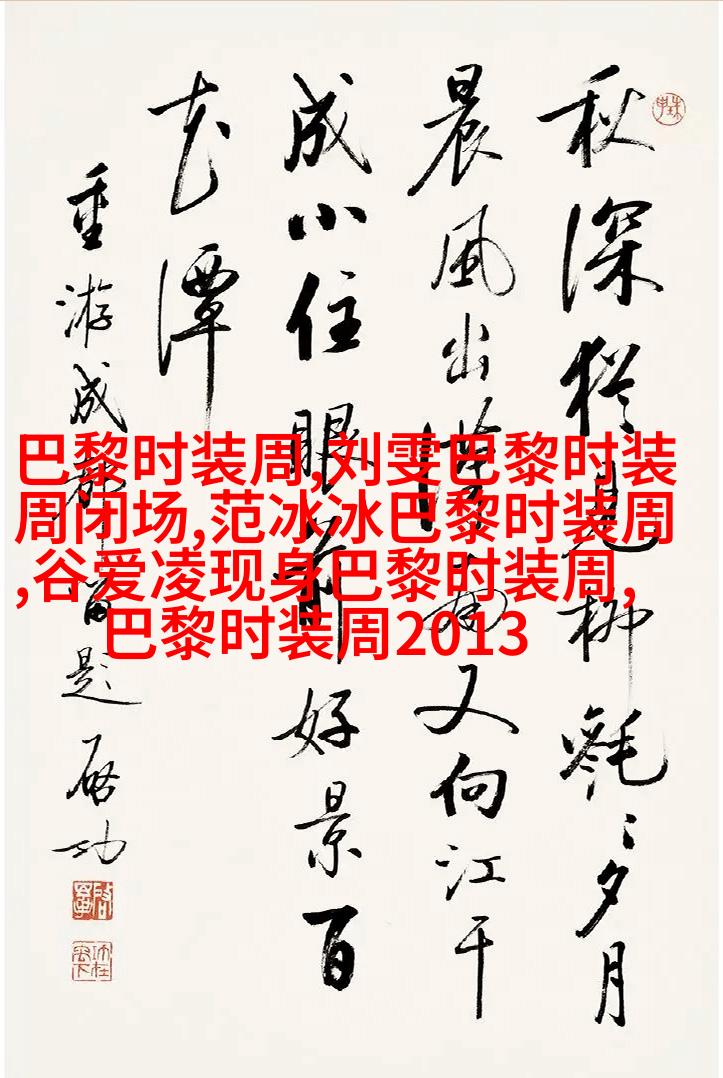 秋深猶見柳毿〻夕月
晨風出漢南又向江干
成小住眼前好景百
花潭
重游成都留題 启功
巴黎时装周,刘雯巴黎时装
周闭场,范冰冰巴黎时装周
,谷爱凌现身巴黎时装周,
巴黎时装周2013